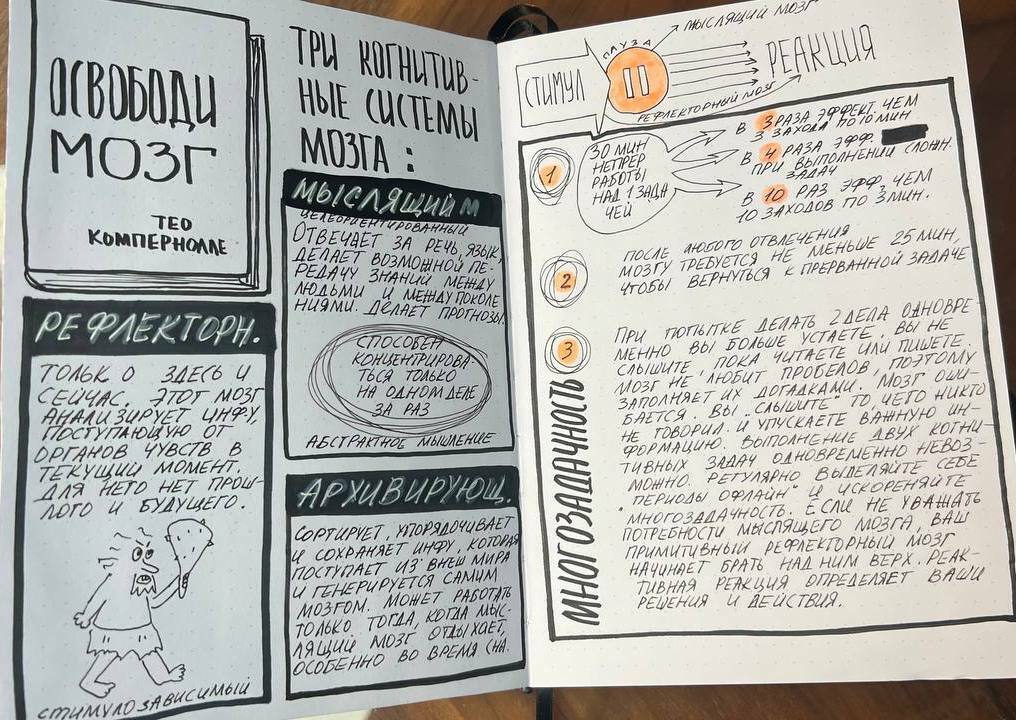 ОСВОБОДИ
МОЗГ
ТЕО
КОМПЕРНОЛЛЕ
РЕФЛЕКТОРН.
ТОЛЬКО О ЗДЕСЬ И
СЕЙЧАС. ЭТОТ МОЗГ
АНАЛИЗИРУЕТ ИНФУ,
ПОСТУПАЮЩУЮ ОТ
ОРГАНОВ ЧУВСТВ В
ТЕКУЩИЙ МОМЕНТ.
ДЛЯ НЕГО НЕТ ПРОШ-
ЛОГО И БУДУЩЕГО.
СТИМУЛОЗАВИСИМЫЙ
ТРИ КОГНИТИВ-
НЫЕ СИСТЕМЫ
МОЗГА:
МЫСЛЯЩИЙ М
ЦЕЛЕОРИЕНТИРОВАННЫЙ
ОТВЕЧАЕТ ЗА РЕЧЬ, ЯЗЫК,
ДЕЛАЕТ ВОЗМОЖНОЙ ПЕ-
РЕДАЧУ ЗНАНИЙ МЕЖДУ
ЛЮДЬМИ И МЕЖДУ ПОКОЛЕ
НИЯМИ. ДЕЛАЕТ ПРОГНОЗЫ.
СПОСОБЕН
КОНЦЕНТРИРОВА-
ТЬСЯ ТОЛЬКО
НА ОДНОМ ДЕЛЕ
ЗА РАЗ
АБСТРАКТНОЕ МЫШЛЕНИЕ
АРХИВИРУЮЩ.
СОРТИРУЕТ, УПОРЯДОЧИВАЕТ
И СОХРАНЯЕТ ИНФУ, КОТОРАЯ
ПОСТУПАЕТ ИЗ ВНЕШ МИРА
И ГЕНЕРИРУЕТСЯ САМИМ
МОЗГОМ. МОЖЕТ РАБОТАТЬ
ТОЛЬКО ТОГДА, КОГДА МЫС-
ЛЯЩИЙ МОЗГ ОТДЫХАЕТ,
ОСОБЕННО ВО ВРЕМЯ СНА.
СТИМУЛ
ПАУЗА
МЫСЛЯЩИЙ МОЗГ
РЕАКЦИЯ
РЕФЛЕКТОРНЫЙ МОЗГ
1
30 МИН
НЕПРЕР
РАБОТЫ
НАД 1 ЗАДА
ЧЕЙ
В 3 РАЗА ЭФФЕКТ. ЧЕМ
3 ЗАХОДА ПО 10 МИН
В 4 РАЗА ЭФФ.
ПРИ ВЫПОЛНЕНИИ СЛОЖН.
ЗАДАЧ
В 10 РАЗ ЭФФ, ЧЕМ
10 ЗАХОДОВ ПО 3 МИН.
2
ПОСЛЕ ЛЮБОГО ОТВЛЕЧЕНИЯ
МОЗГУ ТРЕБУЕТСЯ НЕ МЕНЬШЕ 25 МИН,
ЧТОБЫ ВЕРНУТЬСЯ К ПРЕРВАННОЙ ЗАДАЧЕ
3
МНОГОЗАДАЧНОСТЬ
ПРИ ПОПЫТКЕ ДЕЛАТЬ 2 ДЕЛА ОДНОВРЕ-
МЕННО ВЫ БОЛЬШЕ УСТАЕТЕ. ВЫ НЕ
СЛЫШИТЕ, ПОКА ЧИТАЕТЕ ИЛИ ПИШЕТЕ.
МОЗГ НЕ ЛЮБИТ ПРОБЕЛОВ, ПОЭТОМУ
ЗАПОЛНЯЕТ ИХ ДОГАДКАМИ. МОЗГ ОШИ-
БАЕТСЯ. ВЫ "СЛЫШИТЕ" ТО, ЧЕГО НИКТО
НЕ ГОВОРИЛ. И УПУСКАЕТЕ ВАЖНУЮ ИН-
ФОРМАЦИЮ. ВЫПОЛНЕНИЕ ДВУХ КОГНИ-
ТИВНЫХ ЗАДАЧ ОДНОВРЕМЕННО НЕВОЗ-
МОЖНО. РЕГУЛЯРНО ВЫДЕЛЯЙТЕ СЕБЕ
"ПЕРИОДЫ ОФЛАЙН" И ИСКОРЕНЯЙТЕ
МНОГОЗАДАЧНОСТЬ. ЕСЛИ НЕ УВАЖАТЬ
ПОТРЕБНОСТИ МЫСЛЯЩЕГО МОЗГА, ВАШ
ПРИМИТИВНЫЙ РЕФЛЕКТОРНЫЙ МОЗГ
НАЧИНАЕТ БРАТЬ НАД НИМ ВЕРХ. РЕАК-
ТИВНАЯ РЕАКЦИЯ ОПРЕДЕЛЯЕТ ВАШИ
РЕШЕНИЯ И ДЕЙСТВИЯ.